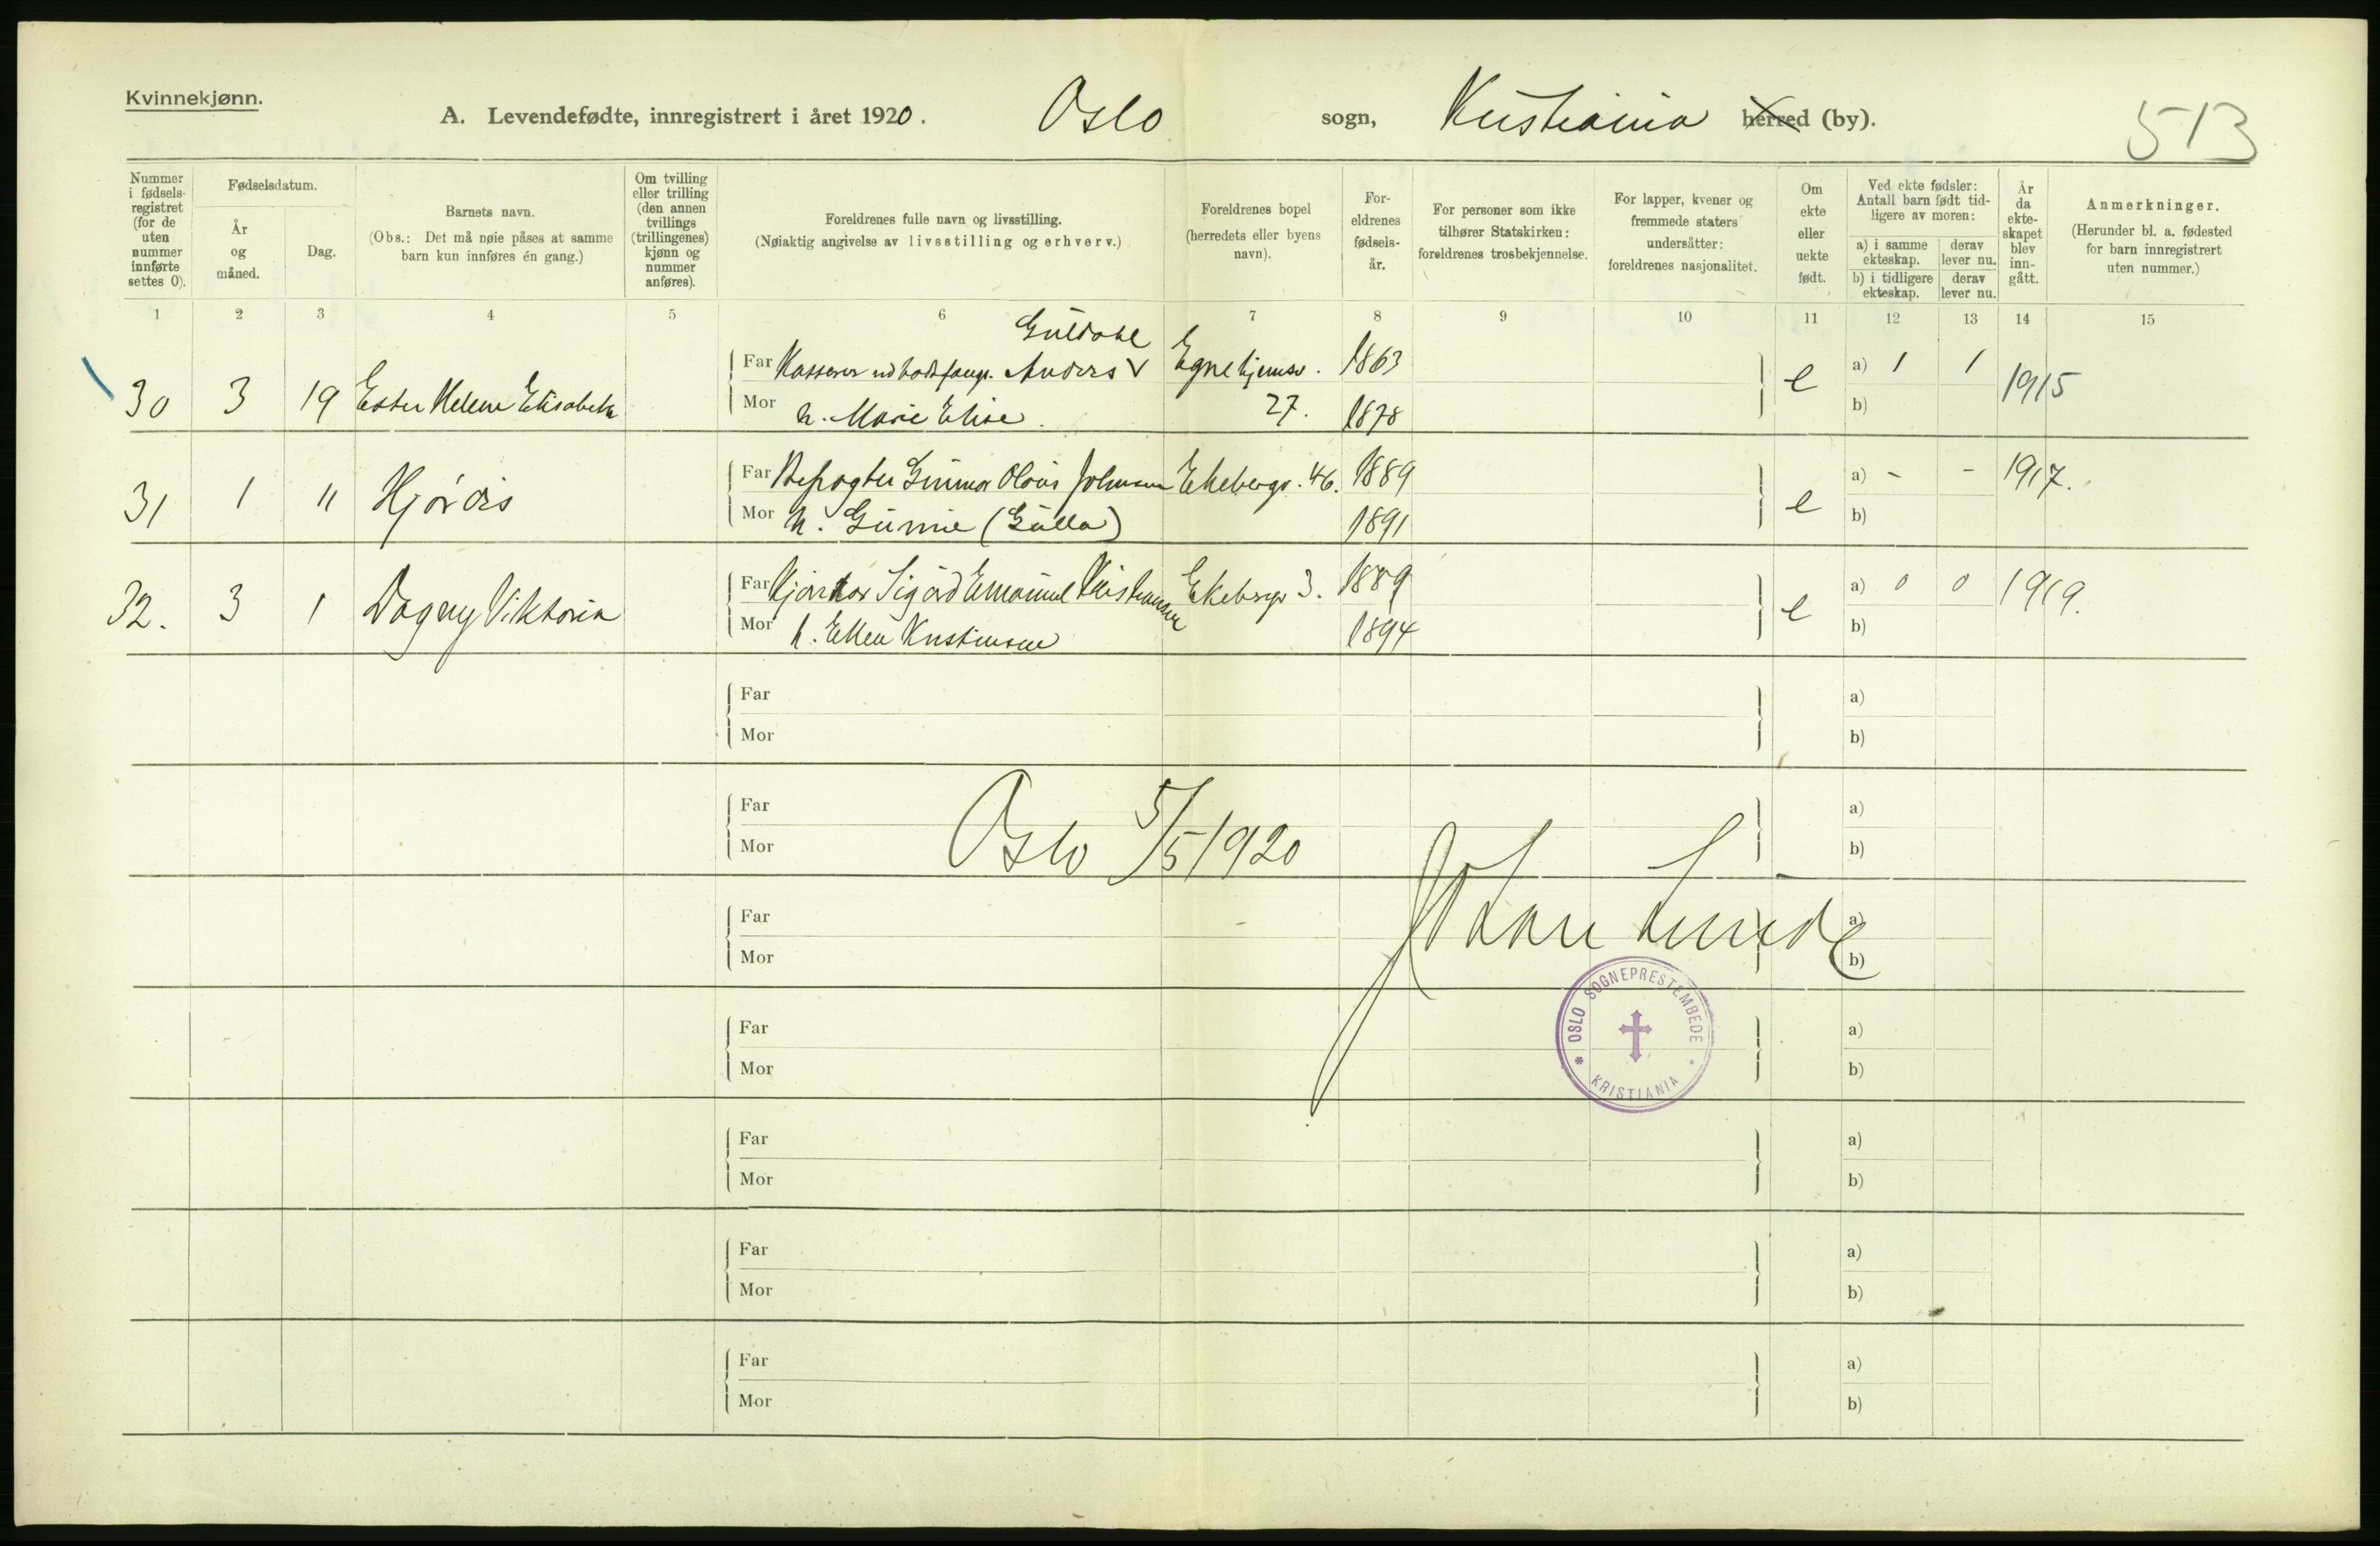 Kvinnekjønn.
A. Levendefødte, innregistrert i året 1920. Oslo sogn, Kristiania herred (by).
513
Nummer i fødsels-registret (for de uten nummer innførte settes 0).
Fødselsdatum.
År og måned.
Dag.
Barnets navn.
(Obs.: Det må nøie påses at samme barn kun innføres én gang.)
Om tvilling eller trilling (den annen tvillings (trillingenes) kjønn og nummer anføres).
Foreldrenes fulle navn og livsstilling.
(Nøiaktig angivelse av livsstilling og erhverv.)
Foreldrenes bopel (herredets eller byens navn).
For-eldrenes fødsels-år.
For personer som ikke tilhører Statskirken: foreldrenes trosbekjennelse.
For lapper, kvener og fremmede staters undersåtter: foreldrenes nasjonalitet.
Om ekte eller uekte født.
Ved ekte fødsler: Antall barn født tid-ligere av moren:
a) i samme ekteskap.
derav lever nu.
b) i tidligere ekteskap.
derav lever nu.
År da ekte-skapet blev inn-gått.
Anmerkninger.
(Herunder bl. a. fødested for barn innregistrert uten nummer.)
1 2 3 4 5 6 7 8 9 10 11 12 13 14 15
Guldahl
30 3 19 Ester Helene Elisabeth Far Kasserer Anders V Egnehjemsv. 1863 e a) 1 1 1915
Mor h. Marie Elise. 27. 1878 b)
31 1 11 Hjørdis Far Gunnar Olaus Johnsen Ekebergv. 46. 1889 e a) - - 1917.
Mor h. Gunnie (Gulla) 1891 b)
32. 3 1 Dagny Viktoria Far Sigurd Emanuel Kristiansen Ekebergv 3. 1889 e a) 0 0 1919.
Mor h. Ellen Kristiansen 1894 b)
Far a)
Mor b)
Far a)
Oslo 5/5 1920
Mor b)
Far a)
Johan Lunde
Mor b)
OSLO SOGNEPRESTEMBEDE * KRISTIANIA
Far a)
Mor b)
Far a)
Mor b)
Far a)
Mor b)
Far a)
Mor b)